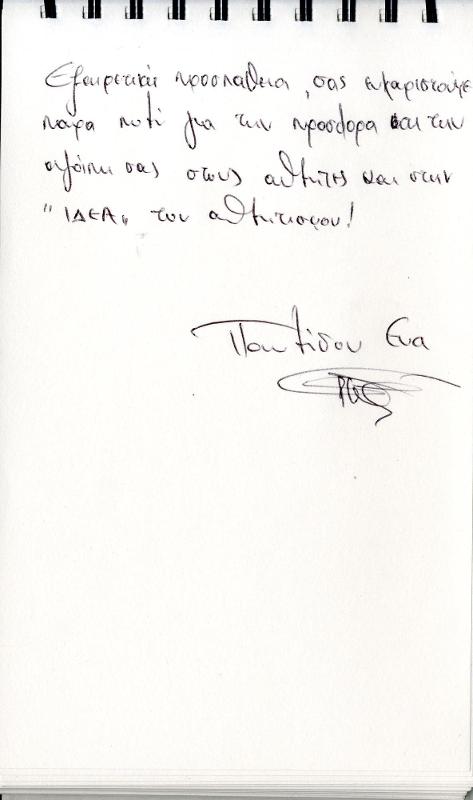 Εξαιρετική προσπάθεια, σας ευχαριστούμε
παρα πολύ για την προσφορα και την
αγάπη σας στους αθλητές και στην
"ΙΔΕΑ" του αθλητισμου!
Παυλίδου Ευα